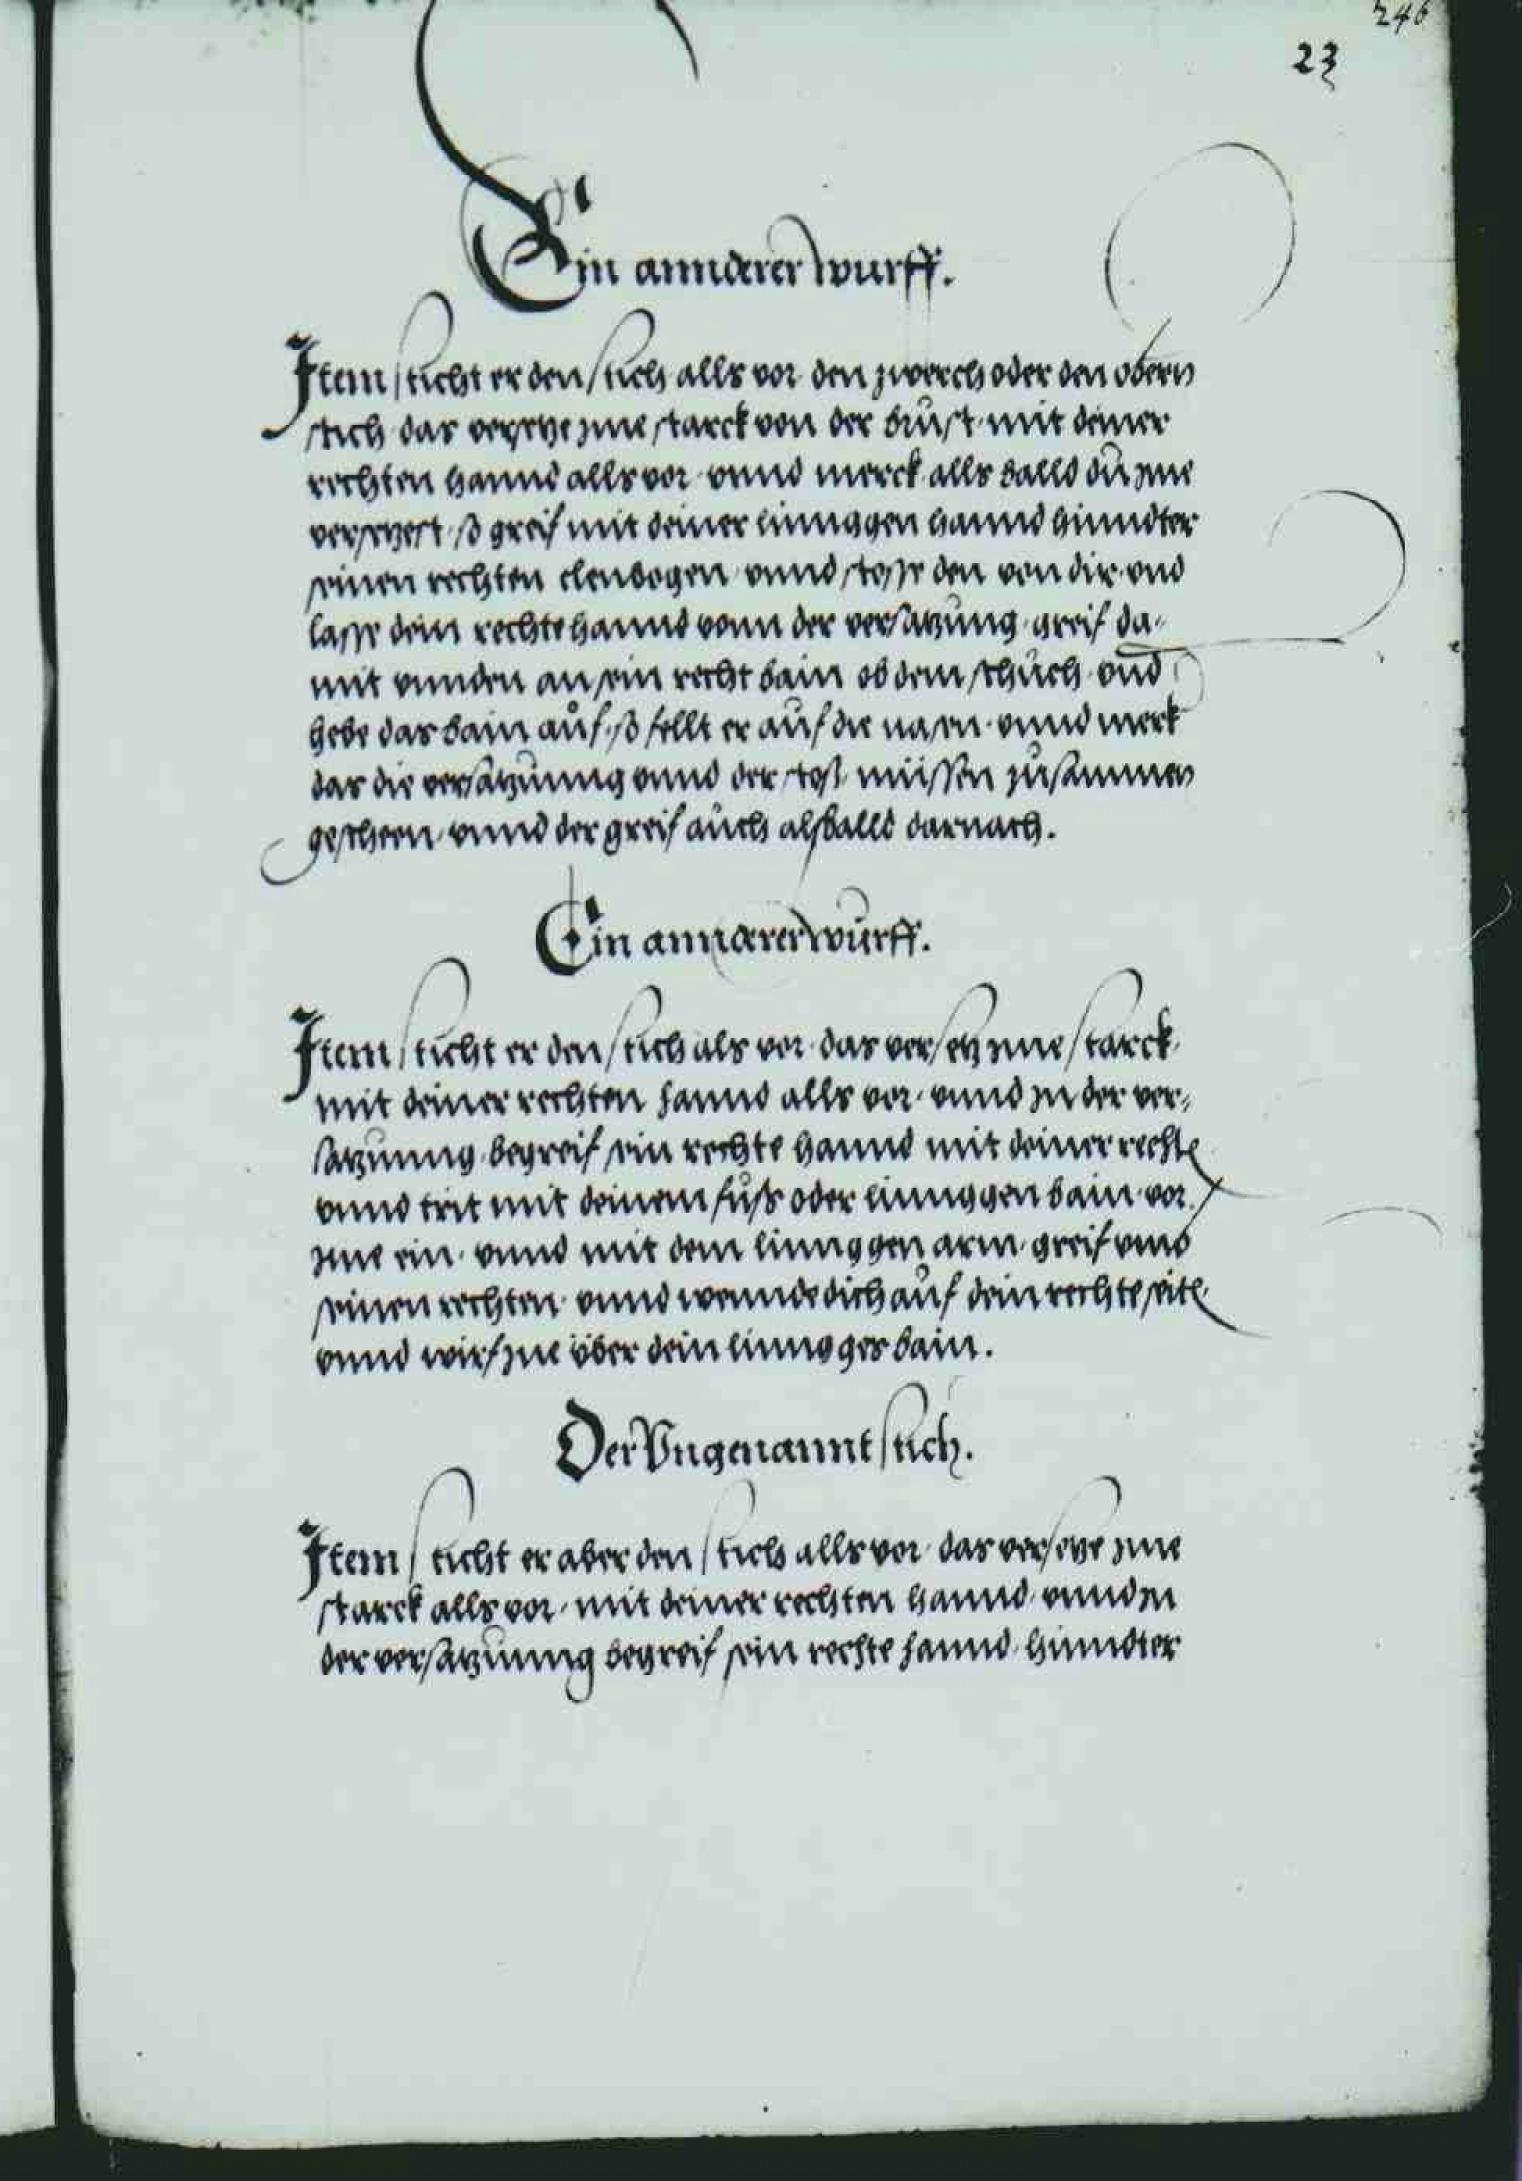 246
23
Ein annderer wurff.
Item sticht er den stich alls vor den zwerch oder den obern
stich das versetze jme starck von der brust mit deiner
rechten hannd alls vor vnnd merck alls balld du jme
versetzest so greif mit deiner linnggen hannd hinndter
seinen rechten elenbogen vnnd stosse den von dir vnd
lasse dein rechte hannd vonn der versatzung greif da-
mit vnnden an sein recht bain ob dem schůch vnd
hebe das bain aůf so fellt er auf die nasen vnnd merk
das die versatzunng vnnd der stoß müssen zůsammen
gescheen vnnd der greif aůch alsballd darnach.
Ein annderer wůrff.
Item sticht er den stich als vor das versetz jme starck
mit deiner rechten hannd alls vor vnnd jn der ver-
satzunng begreif sein rechte hannd mit deiner rechte
vnnd trit mit deinem fuß oder linnggen bain vor
jme ein vnnd mit dem linnggen arm greif vmb
seinen rechten vnnd wennde dich aůf dein rechte seite
vnnd wirf jne über dein linngges bain.
Der Vngenannt stich.
Item sticht er aber den stich alls vor das versetze jme
starck alls vor mit deiner rechten hannd vnnd jn
der versatzůnng begreif sein rechte hannd hinndter